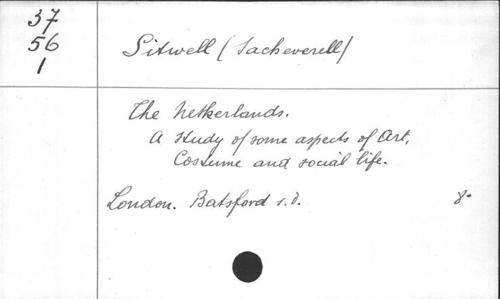 37
56
1
Sitwell (Sacheverell)
The Netherlands.
A study of some aspects of Art,
Costume and social life.
London. Batsford s.d. 8º